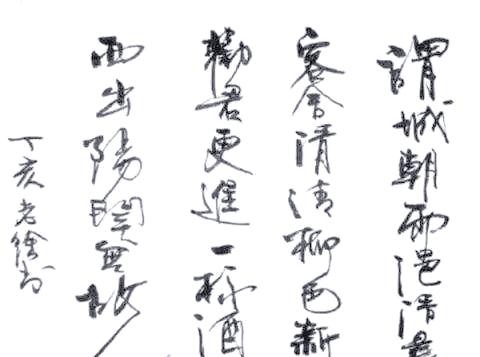 謂城朝雨浥清
客舍清清柳色新
勸君更進一杯酒
西出陽関無故
丁亥老徐书